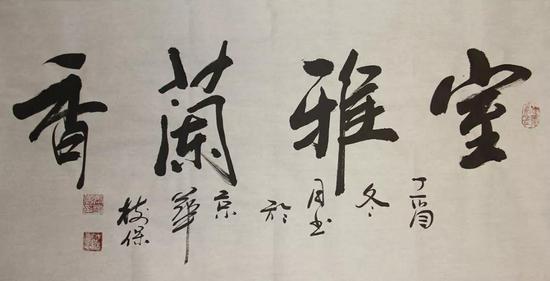 室雅蘭香
丁酉冬月书於京華
保